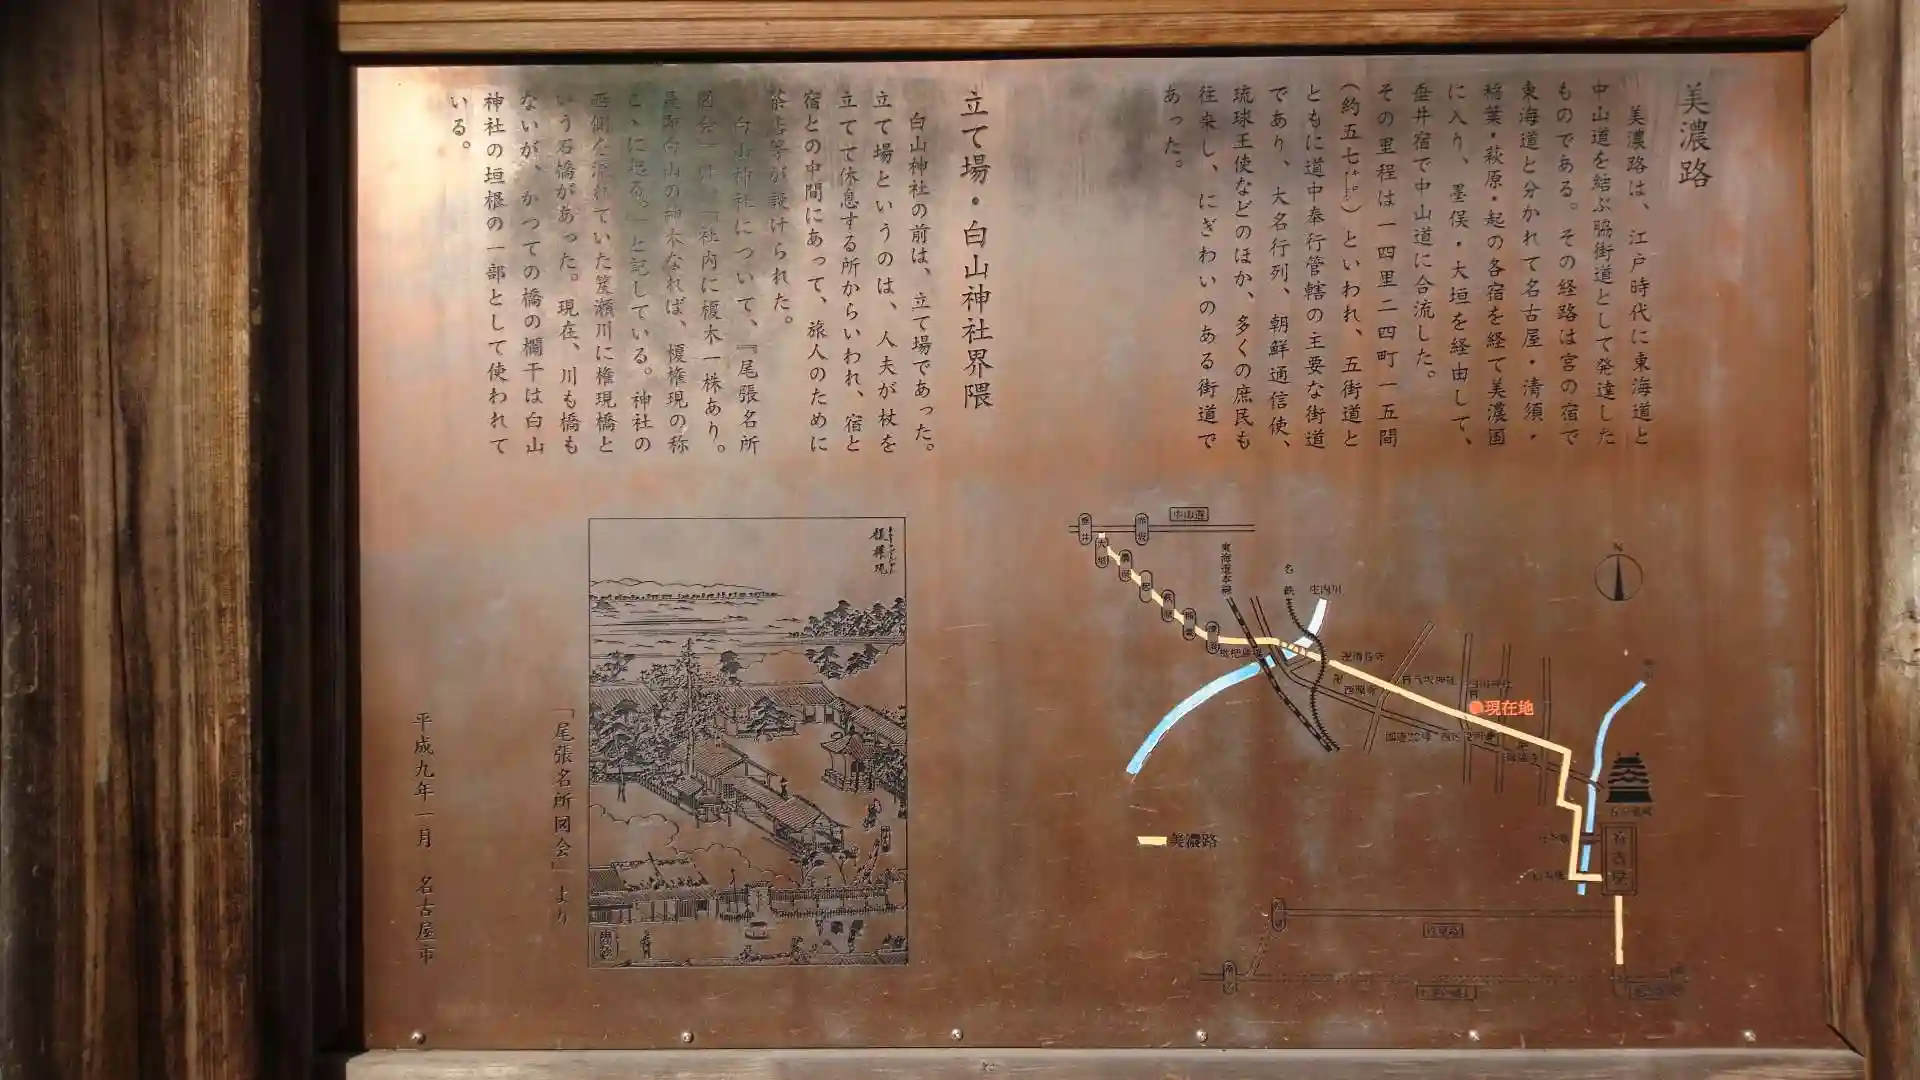 美濃路
美濃路は、江戸時代に東海道と
中山道を結ぶ脇街道として発達した
ものである。その経路は宮の宿で
東海道と分かれて名古屋・清須・
稲葉・萩原・起の各宿を経て美濃国
に入り、墨俣・大垣を経由して、
垂井宿で中山道に合流した。
その里程は一四里二四町一五間
(約五七キロ)といわれ、五街道と
ともに道中奉行管轄の主要な街道
であり、大名行列、朝鮮通信使、
琉球王使などのほか、多くの庶民も
往来し、にぎわいのある街道で
あった。
立て場・白山神社界隈
白山神社の前は、立て場であった。
立て場というのは、人夫が杖を
立てて休息する所からいわれ、宿と
宿との中間にあって、旅人のために
茶店等が設けられた。
白山神社について、『尾張名所
図会』は、「社内に榎木一株あり。
是即白山の神木なれば、榎権現の称
こゝに起る。」と記している。神社の
西側を流れていた笈瀬川に権現橋と
いう石橋があった。現在、川も橋も
ないが、かつての橋の欄干は白山
神社の垣根の一部として使われて
いる。
中山道
垂井
赤坂
大垣
墨俣
起
萩原
稲葉
清須
東海道本線
名鉄
庄内川
枇杷島橋
N
清音寺
西願寺
現在地
国道22号
名古屋城
名古屋
美濃路
榎権現
「尾張名所図会」より
平成九年一月 名古屋市